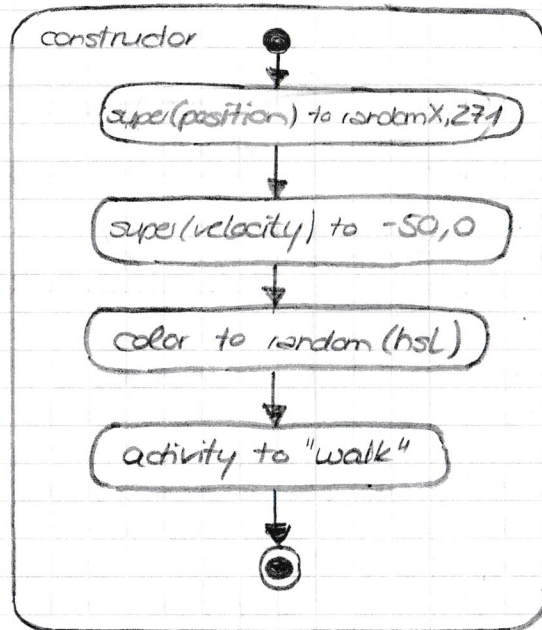 constructor
super(position) to randomX,271
super(velocity) to -50,0
color to random(hsl)
activity to "walk"